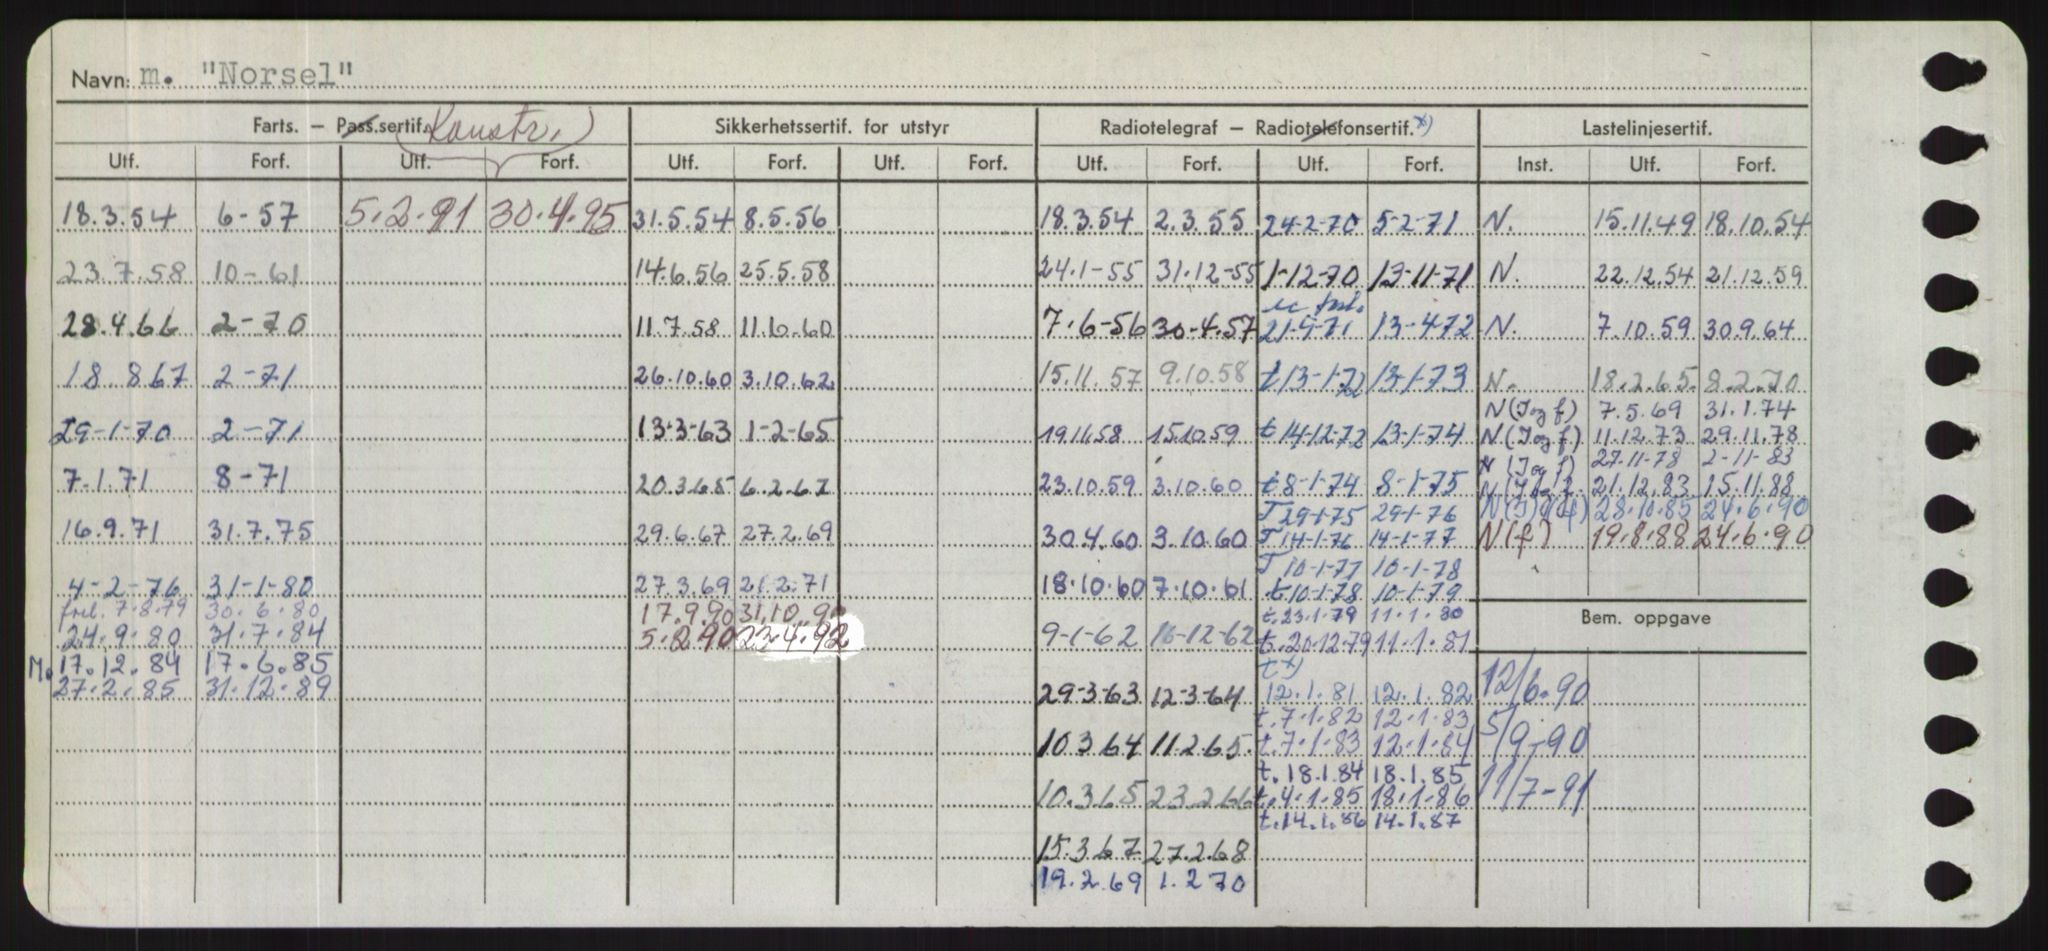 Navn: m. "Norsel"
Farts. – Pass.sertif. (Konstr.) Sikkerhetssertif. for utstyr Radiotelegraf – Radiotelefonsertif. x) Lastelinjesertif.
Utf. Forf. Utf. Forf. Utf. Forf. Utf. Forf. Utf. Forf. Utf. Forf. Inst. Utf. Forf.
18.3.54 6-57 5.2.91 30.4.95 31.5.54 8.5.56 18.3.54 2.3.55 24-2-70 5-2-71 N. 15.11.49 18.10.54
23.7.58 10-61 14.6.56 25.5.58 24.1-55 31.12-55 1-12-70 13-11-71 N. 22.12.54 21.12.59
28.4.66 2-70 11.7.58 11.6.60 7.6-56 30-4.57 21-9-71 13-4-72 N. 7.10.59 30.9.64
18.8.67 2-71 26.10.60 3.10.62 15.11.57 9.10.58 t 13-1-72 13-1-73 N. 18.2.65. 8.2.70
N (I og f) 7.5.69 31.1.74
29-1-70 2-71 13-3-63 1-2-65 19.11.58 15.10.59 t 14-12-72 13-1-74 N (I og f) 11.12.73 29.11.78
N (I og f) 27-11-78 2-11-83
7.1.71 8-71 20.3.65 6.2.67 23.10.59 3.10.60 t 8-1-74 8-1-75 N (I og f. 21.12.83 15.11.88
T 29-1-75 29-1-76 28.10.85 24.6.90
16.9.71 31.7.75 29.6.67 27.2.69 30.4.60 3.10.60 T 14-1-76 14-1-77 N (f) 19.8.88 24.6.90
T 10-1-77 10-1-78
4-2-76 31-1-80 27.3.69 21.2.71 18.10.60 7.10.61 t 10-1-78 10-1-79
forl. 7.8.79 30.6.80 17.9.90 31.10.90 t. 23.1.79 11.1.80 Bem. oppgave
24.9.80 31.7.84 5.2.90 23.4.92 9-1-62 16-12-62 t. 20.12.79 11.1.81
M. 17.12.84 17.6.85 t x)
27.2.85 31.12.89 29-3-63 12-3-64 12.1.81 12.1.82 12/6-90
t. 7.1.82 12.1.83
10.3.64 11.2.65. t. 7.1.83 12.1.84 5/9-90
t. 18.1.84 18.1.85
10.3.65 23.2.66 t. 4.1.85 18.1.86 11/7-91
t. 14.1.86 14.1.87
15.3.67 27.2.68
19.2.69 1.2.70